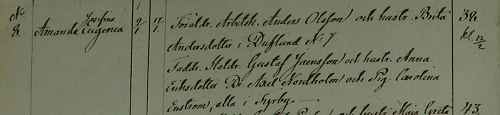 No
8. Amanda Josefina Eugenia 2/1 17/1 Föräldr. Arbetsk. Anders Olsson och hustr. Brita 38.
Andersdotter i Duflund No 7
Faddr. Haldr. Gustaf Jaensson och hustr. Anna
Eriksdotter Dr. Axel Nordholm och Pig. Carolina
Enström, alla i Tyrby.
43.